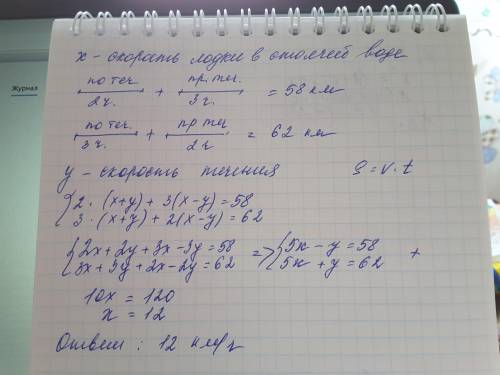 Журнал
x - скорость лодки в стоячей воде
по теч. / 2ч. + пр теч. / 3ч. = 58 км
по теч. / 3ч. + пр теч. / 2ч = 62 км
y - скорость течения S = v · t
{ 2 · (x+y) + 3(x-y) = 58
3 · (x+y) + 2(x-y) = 62
{ 2x + 2y + 3x - 3y = 58 => { 5x - y = 58 +
3x + 3y + 2x - 2y = 62 5x + y = 62
10x = 120
x = 12
Ответ : 12 км/ч